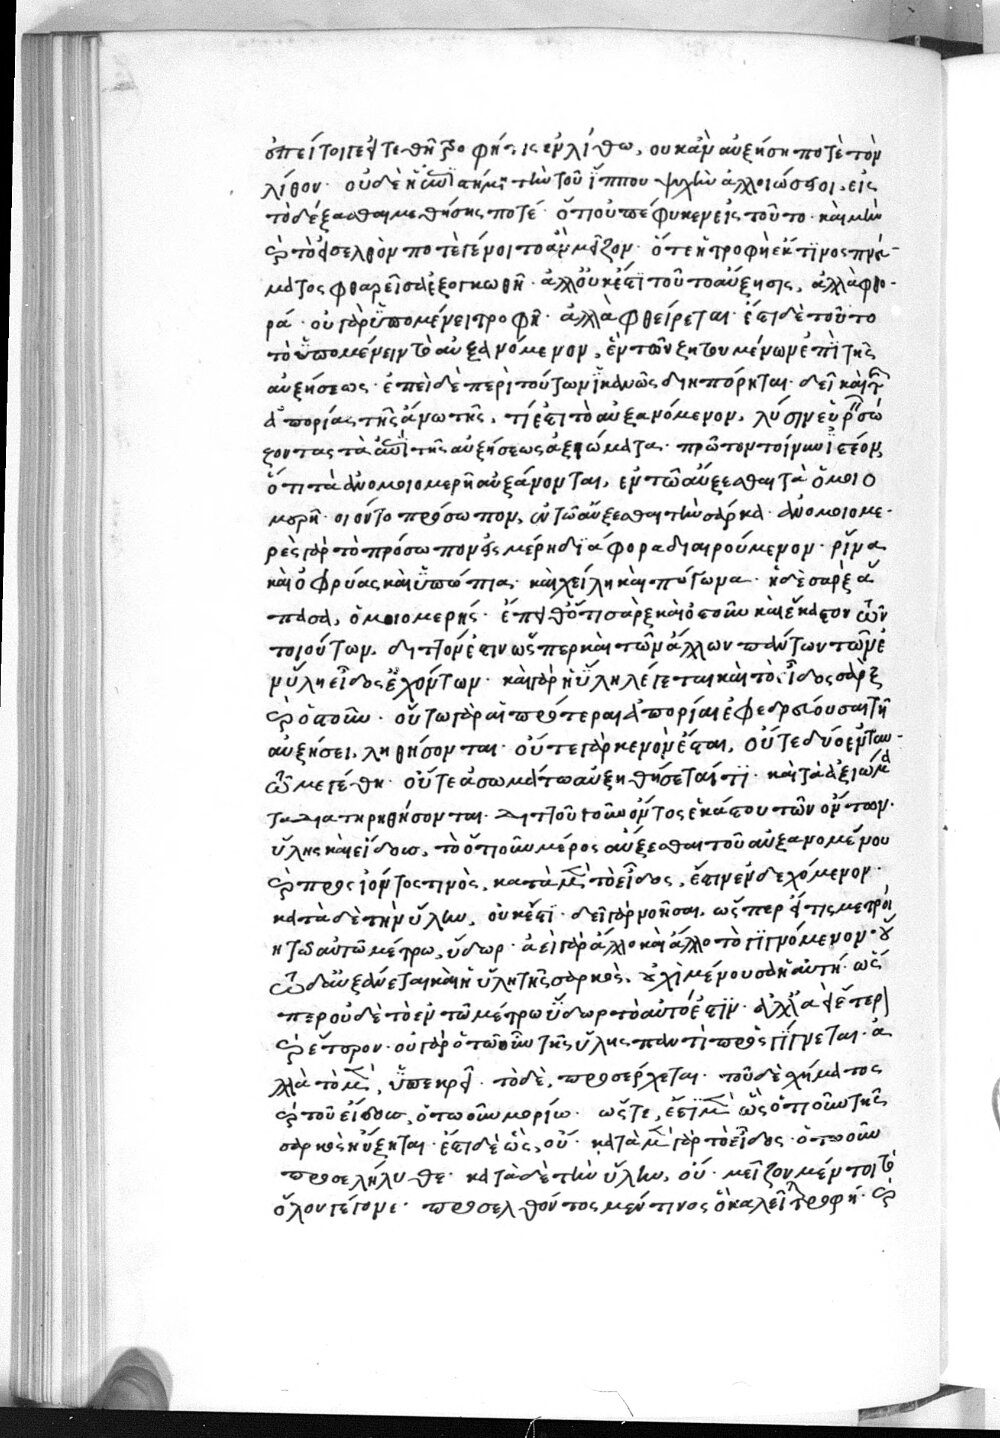 ἐπεί τοί γε ἐὰν τεθῇ τροφή τις ἐν λίθω, οὐκ ἂν αὐξήση ποτὲ τὸν
λίθον· οὐδὲ ἡ τὴν τοῦ ἵππου ψυχὴν ἀλλοιώσασα, εἰς
τὸ δέξασθαι μεθήσης ποτέ· ὅτι οὐ πέφυκεν εἰς τοῦτο· καὶ μὴν
καὶ τὸ εἰσελθὸν ποτὲ γένοιτο ἂν μεῖζον· ὅτε ἡ τροφὴ ἔκ τινος πνεύ-
ματος φθαρεῖσα ἐξογκωθῆ· ἀλλ' οὐκ ἔστι τοῦτο αὔξησις, ἀλλὰ φθο-
ρά· οὐ γὰρ ὑπομένει τροφὴ· ἀλλὰ φθείρεται· ἔστι δὲ τοῦτο
τὸ ὑπομένειν τὸ αὐξανόμενον, ἓν τῶν ζητουμένων ἐπὶ τῆς
αὐξήσεως· ἐπεὶ δὲ περὶ τούτων ἱκανῶς διηπόρηται· δεῖ καὶ τῆς
ἀπορίας τῆς ἄνω τῆς, τί ἐστι τὸ αὐξανόμενον, λύσιν εὑρεῖν σώ
ζοντας τὰ τῆς αὐξήσεως ἀξιώματα· πρῶτον τοίνυν ἰστέον
ὅτι τὰ ἀνομοιομερῆ αὐξάνονται, ἐν τῶ αὔξεσθαι τὰ ὅμοιο
μερῆ· οἷον τὸ πρόσωπον, ἐν τῶ αὔξεσθαι τὴν σάρκα· ἀνομοιομε-
ρὲς γὰρ τὸ πρόσωπον εἰς μέρη διάφορα διαιρούμενον· ῥῖνα
καὶ ὀφρύας καὶ ὑπώπια· καὶ χείλη καὶ πώγωνα· ἡ δὲ σὰρξ ἅ
πασα, ὁμοιομερής· ἔπειθ' ὅτι σὰρξ καὶ ὀστοῦν καὶ ἕκαστον τῶν
τοιούτων, διττόν ἐστιν ὥσπερ καὶ τῶν ἄλλων πάντων τῶν ἐ
ν ὕλη εἶδος ἐχόντων· καὶ γὰρ ἡ ὕλη λέγεται καὶ τὸ εἶδος σὰρξ
καὶ ὀστοῦν· οὕτω γὰρ αἱ πρότεραι ἀπορίαι ἐφεδρεύουσαι τῆ
αὐξήσει, ληθήσονται· οὔτε γὰρ κενὸν ἔσται, οὔτε δύο ἐν ταυ-
τῶ μεγέθη· οὔτε ἀσωμάτω αὐξηθήσεταί τι· καὶ τὰ ἀξιώμα
τα διατηρηθήσονται· διττοῦ τοῦν ὄντος ἑκάστου τῶν ὄντων·
ὕλης καὶ εἴδους, τὸ ὁτιοῦν μέρος αὔξεσθαι τοῦ αὐξανομένου
καὶ προσιόντος τινὸς, κατὰ μὲν τὸ εἶδος, ἔστιν ἐνδεχόμενον·
κατὰ δὲ τὴν ὕλην, οὐκ ἔστι· δεῖ γὰρ νοῆσαι, ὥσπερ εἴ τις μετροί
η τῶ αὐτῶ μέτρω, ὕδωρ· ἀεὶ γὰρ ἄλλο καὶ ἄλλο τὸ γιγνόμενον· οὕ
τω δ' αὐξάνεται καὶ ἡ ὕλη τῆς σαρκὸς, οὐχὶ μένουσα ἡ αὐτή· ὥσ
περ οὐδὲ τὸ ἐν τῶ μέτρω ὕδωρ τὸ αὐτό ἐστιν· ἀλλ' ἀεὶ ἕτερον
καὶ ἕτερον· οὐ γὰρ ὁτωοῦν τῆς ὕλης παντὶ προσγίγνεται· ἀ
λλὰ τὸ μὲν, ὑπεκρεῖ· τὸ δὲ, προσέρχεται· τοῦ δὲ σχήματος
καὶ τοῦ εἴδους, ὁτωοῦν μορίω· ὥστε, ἔστι μὲν ὡς ὁτιοῦν τῆς
σαρκὸς ηὔξηται· ἔστι δὲ ὡς, οὔ· κατὰ μὲν γὰρ τὸ εἶδος· ὁτωοῦν
προσελήλυθε· κατὰ δὲ τὴν ὕλην, οὔ· μεῖζον μέντοι τὸ
ὅλον γέγονε· προσελθόντος μέν τινος ὃ καλεῖται τροφή· καὶ